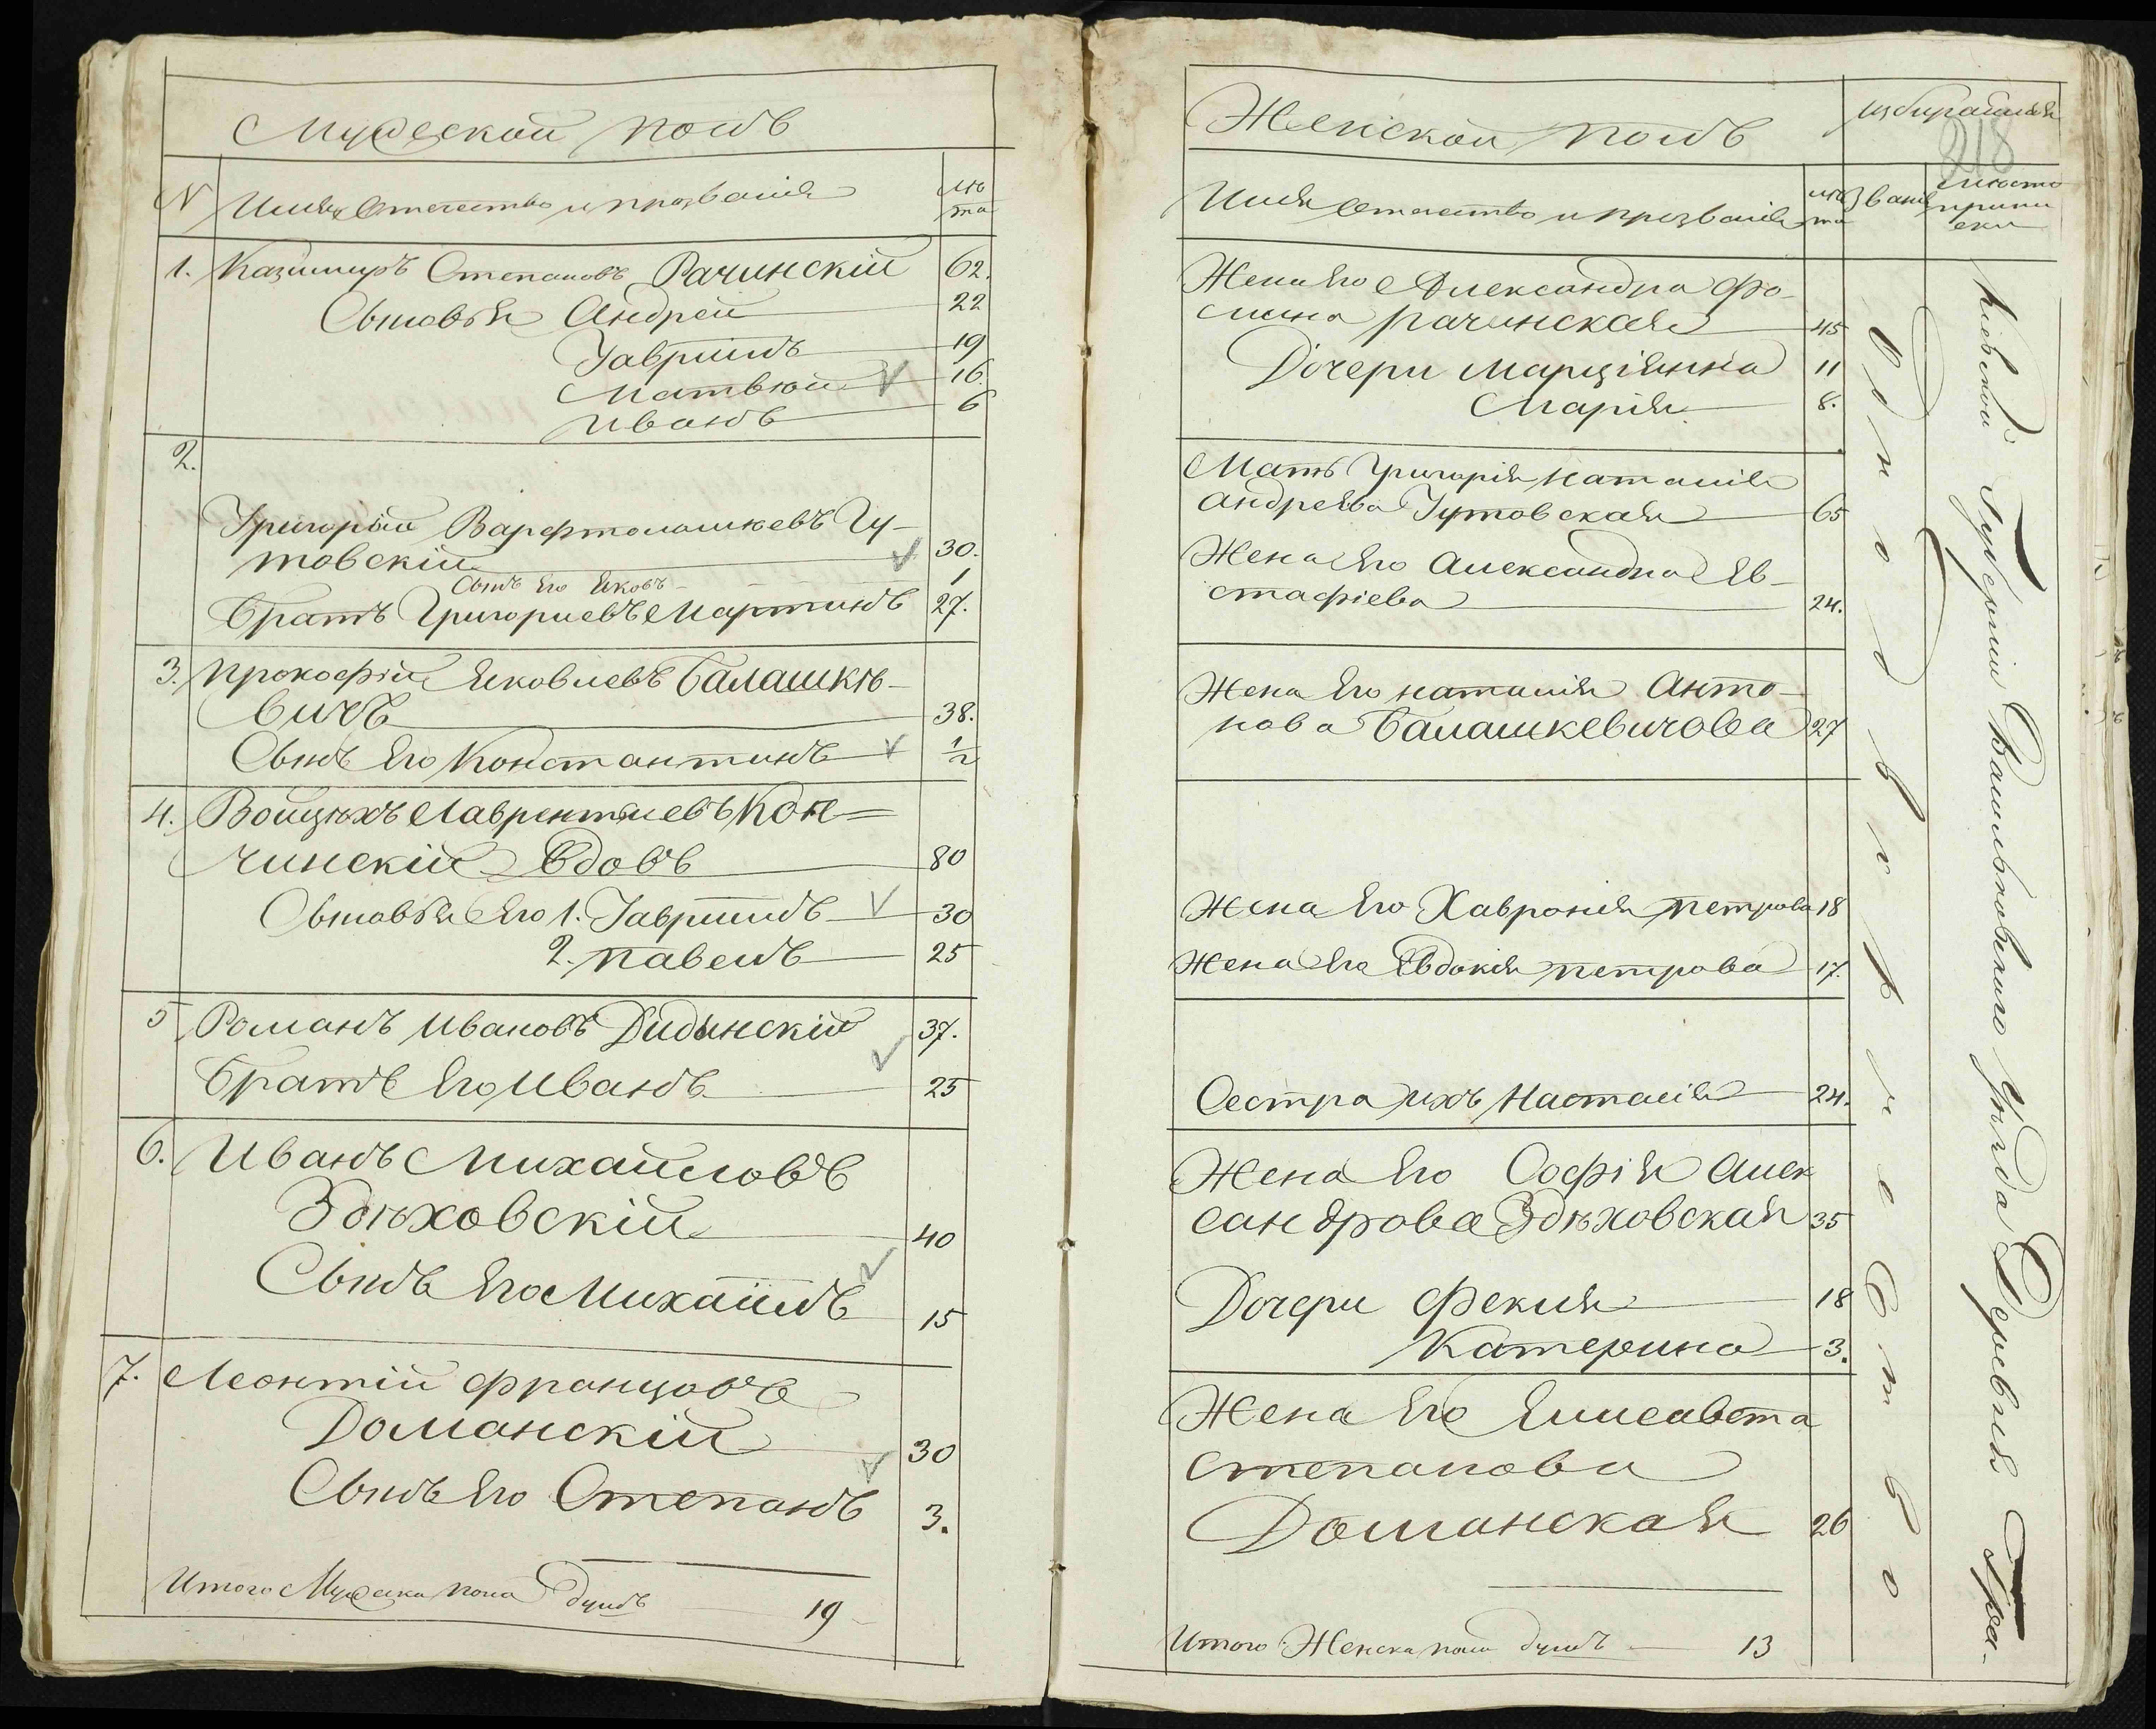 Мужеской полъ
N Имя, отечество и прозвание лѣ
та
1. Казимиръ Степановъ Рачинскій 62.
Сыновья Андрей 22
Гаврiилъ 19
Матвѣй 16.
Иванъ 6
2.
Григорій Варфтоломѣевъ Гу-
товскій 30.
Сынъ Его Яковъ 1
Братъ Григориевъ Мартинъ 27.
3. Прокофій Яковлевъ Балашкѣ-
вичъ 38.
Сынъ Его Константинъ 1/2
4. Войцѣхъ Лаврентиевъ Кон=
чинскій Вдовъ 80
Сыновья Его 1. Гаврiилъ 30
2. Павелъ 25
5 Романъ Ивановъ Дидынскій 37.
Братъ Его Иванъ 25
6. Иванъ Михайловъ
Здѣховскій 40
Сынъ Его Михаилъ 15
7. Леонтій Францовъ
Доманскій 30
Сынъ Его Степанъ 3.
Итого Мужеска пола душъ 19
Женской полъ
218
Имя отечество и прозвание лѣ
та
звание
место
припи
ски
Жена Его Александра Фо-
мина Рачинская 45
Дочери Марціянна 11
Марія 8.
Мать Григорія Наталия
Андреева Гутовская 65
Жена Его Александра Ев-
стафіева 24.
Жена Его Наталия Анто-
нова Балашкевичова 27
Жена Его Хаврония Петрова 18
Жена Его Евдокия Петрова 17.
Сестра ихъ Настасия 24.
Жена Его Софія Алек
сандрова Здѣховская 35
Дочери Фекла 18
Катерина 3.
Жена Его Елисавета
Степанова
Доманская 26
Итого Женска пола душъ 13
Киевской Губернии Васильковского Уезда Деревня